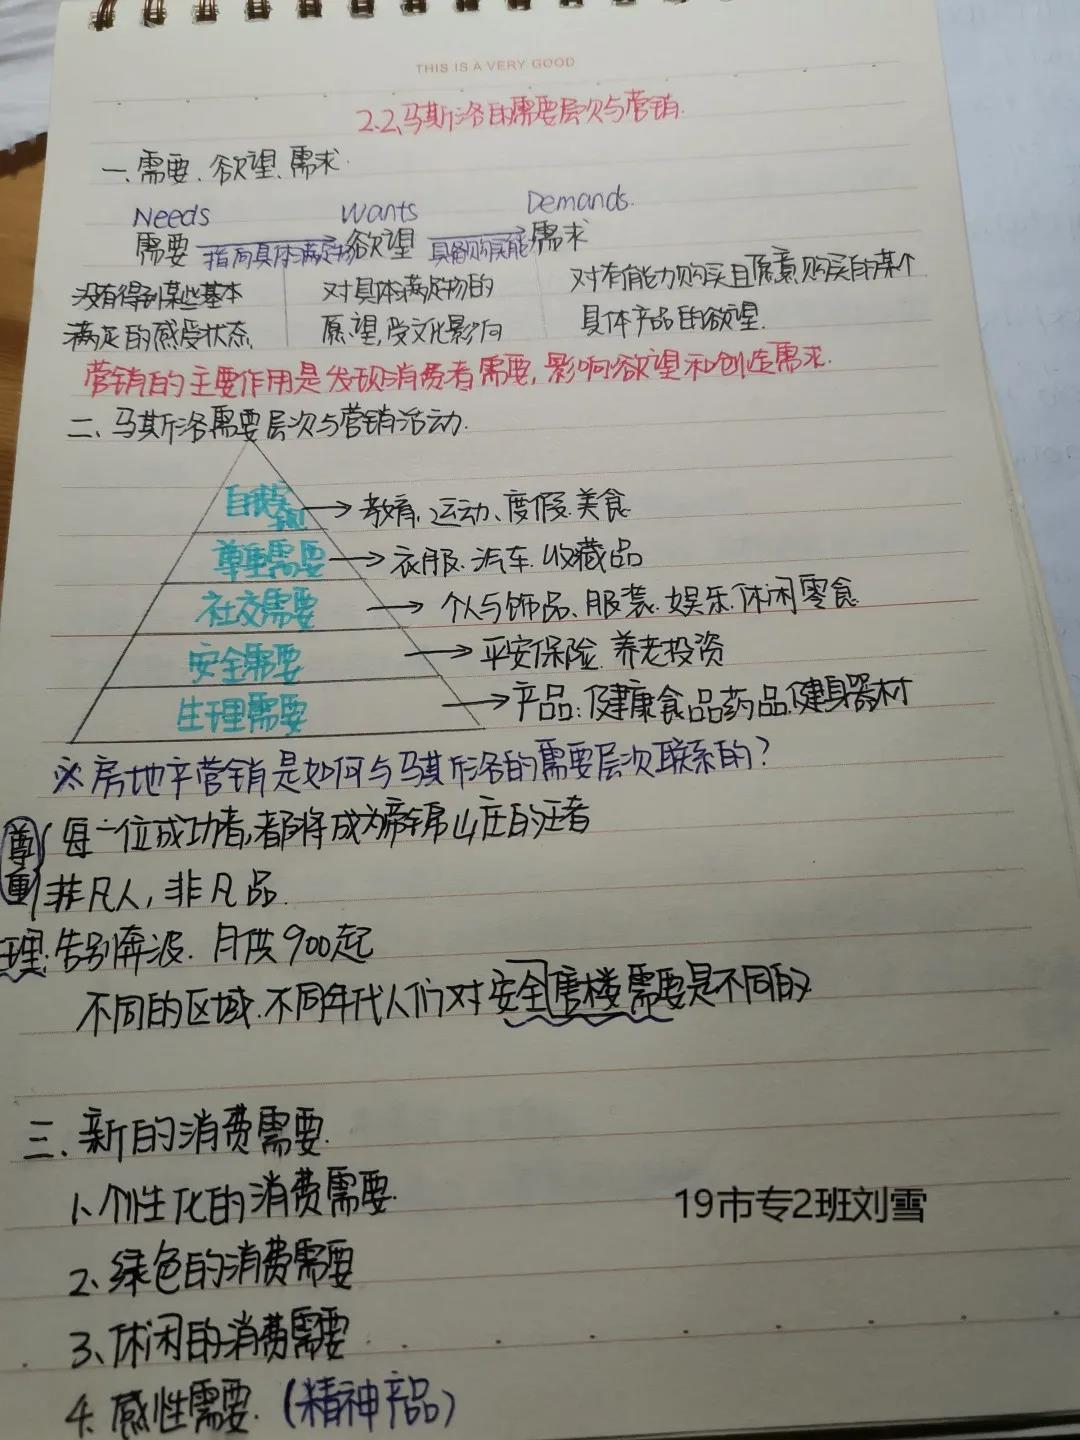 THIS IS A VERY GOOD
2.2、马斯洛的需要层次与营销.
一、需要、欲望、需求.
Needs Wants Demands.
需要 指向具体满足物 欲望 具备购买能 需求
没有得到某些基本 对具体满足物的 对有能力购买且愿意购买的某个
满足的感受状态. 愿望,受文化影响 具体产品的欲望.
营销的主要作用是发现消费者需要,影响欲望和创造需求.
二、马斯洛需要层次与营销活动.
自我实现 → 教育、运动、度假.美食
尊重需要 → 衣服.汽车.收藏品
社交需要 → 个人与饰品、服装.娱乐.休闲零食
安全需要 → 平安保险.养老投资
生理需要 → 产品:健康食品药品.健身器材
※房地产营销是如何与马斯洛的需要层次联系的?
尊重 每一位成功者,都将成为帝锦山庄的王者
非凡人,非凡品.
理:告别奔波.月供900起
不同的区域.不同年代人们对安全售楼需要是不同的
三、新的消费需要.
1、个性化的消费需要.
19市专2班刘雪
2、绿色的消费需要
3、休闲的消费需要
4、感性需要.(精神产品)